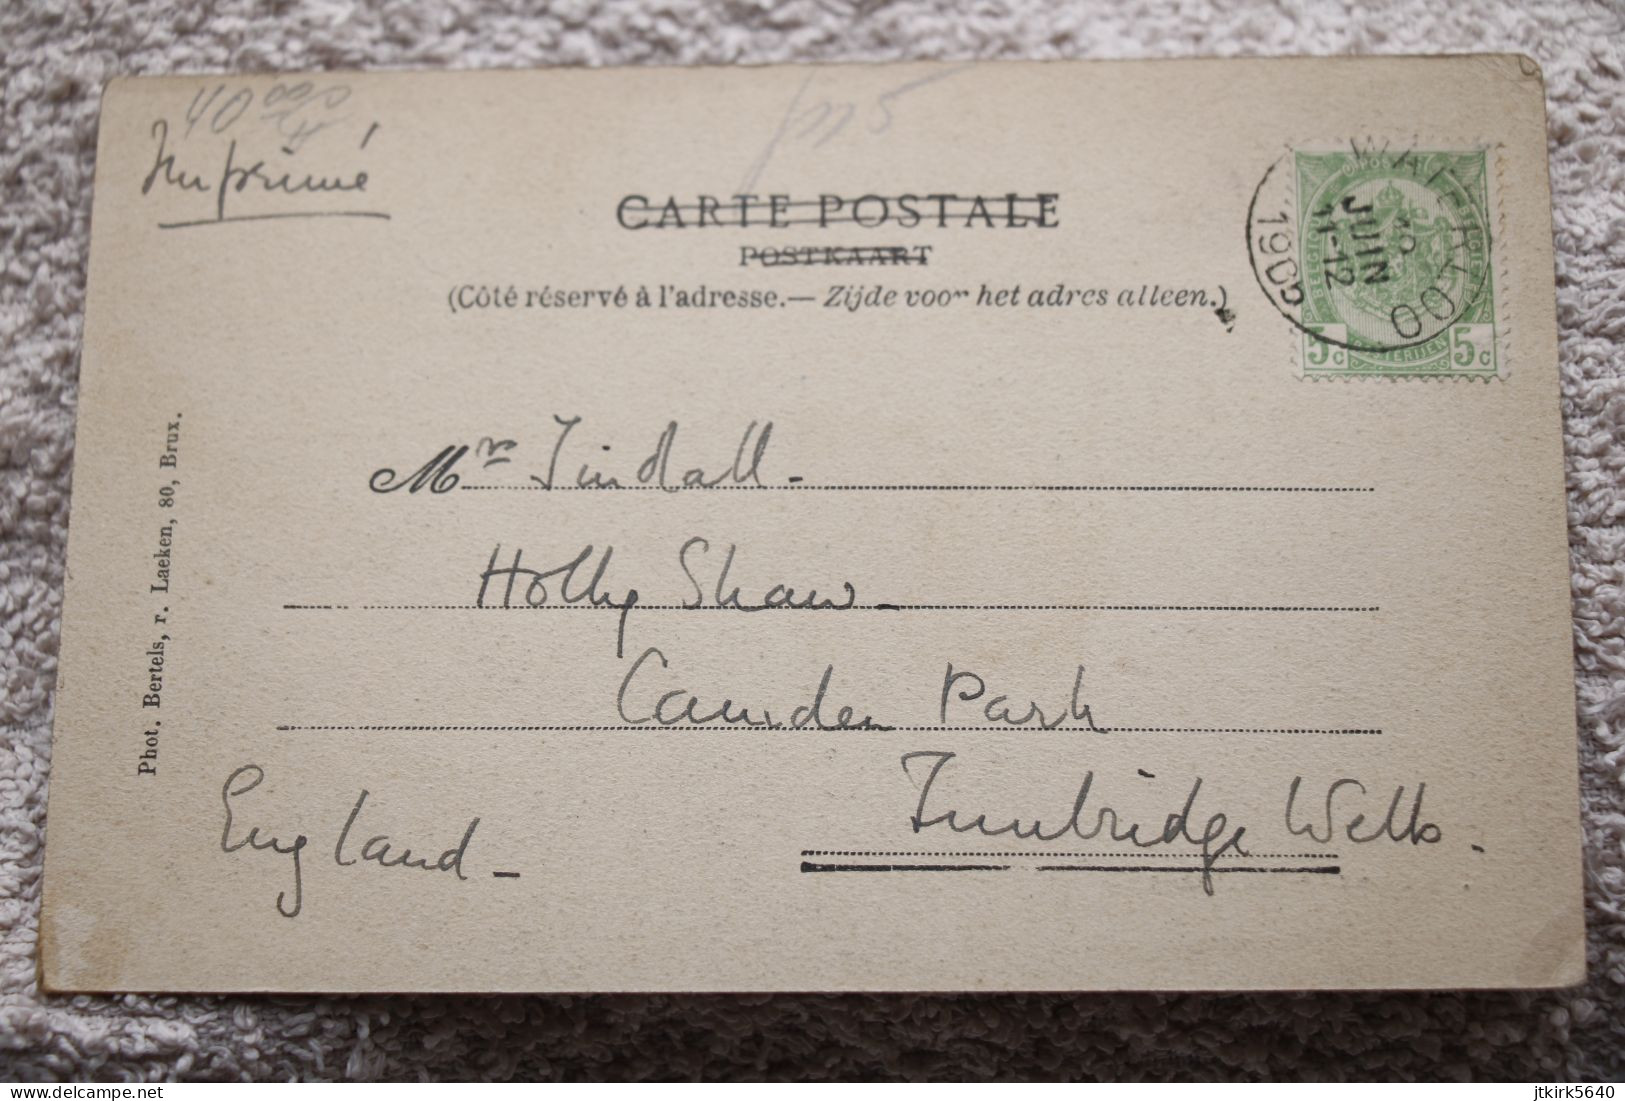 Imprimé
CARTE POSTALE
POSTKAART
(Côté réservé à l'adresse.— Zijde voor het adres alleen.)
WATERLOO
JUIN
11-12
5c 5c
Phot. Bertels, r. Laeken, 80, Brux.
Mr Tindall -
Holly Shaw -
Camden Park
Tunbridge Wells.
England -
www.delcampe.net
jtkirk5640